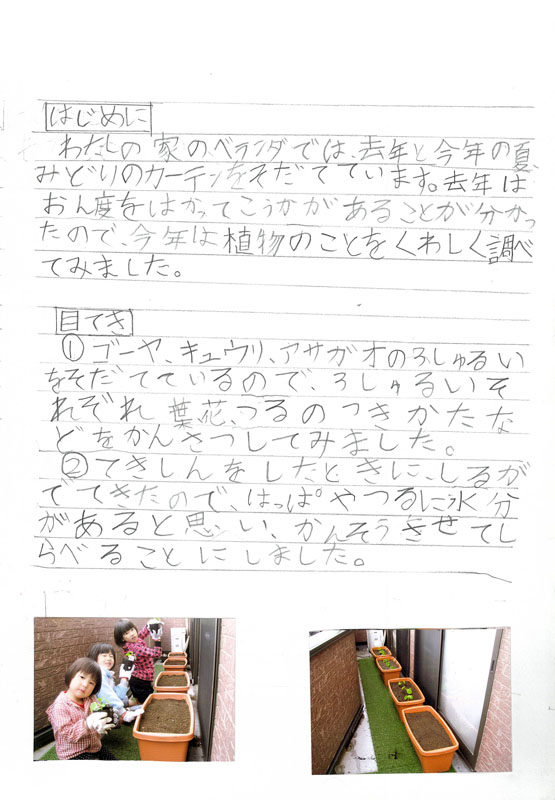 はじめに
わたしの家のベランダでは、去年と今年の夏、
みどりのカーテンをそだてています。去年は
おん度をはかってこうかがあることが分かっ
たので、今年は植物のことをくわしく調べ
てみました。
目てき
①ゴーヤ、キュウリ、アサガオの3しゅるい
をそだてているので、3しゅるいそ
れぞれ葉、花、つるのつきかたな
どをかんさつしてみました。
②てきしんをしたときに、しるが
でてきたので、はっぱやつるに水分
があると思い、かんそうさせてし
らべることにしました。